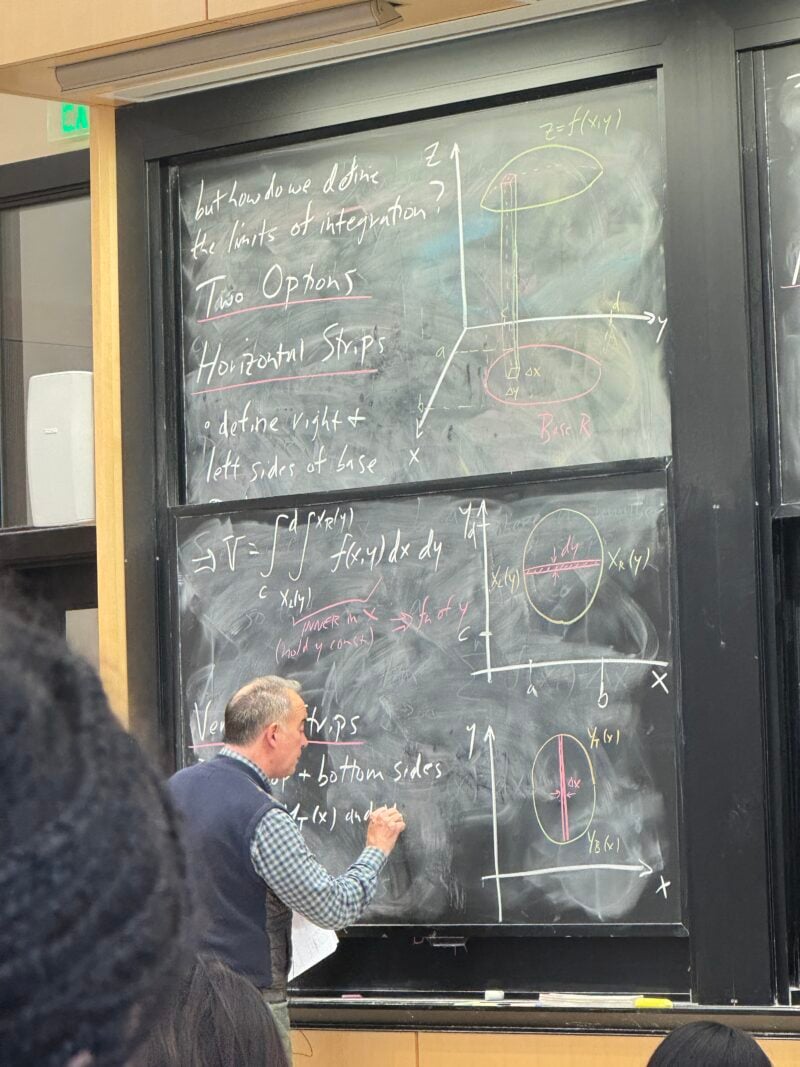 but how do we define
the limits of integration?
Two Options
Horizontal Strips
• define right +
left sides of base
Z
z = f(x,y)
d
y
a
b
c
Δx
Δy
Base R
X
⇒ V = ∫_c^d ∫_{X_L(y)}^{X_R(y)} f(x,y) dx dy
INNER in X
(hold y const) ⇒ fn of y
y
d
dy
X_L(y)
X_R(y)
c
a
b
X
Ver trips
op + bottom sides
Y_T(x) and
y
Y_T(x)
Δx
Y_B(x)
X